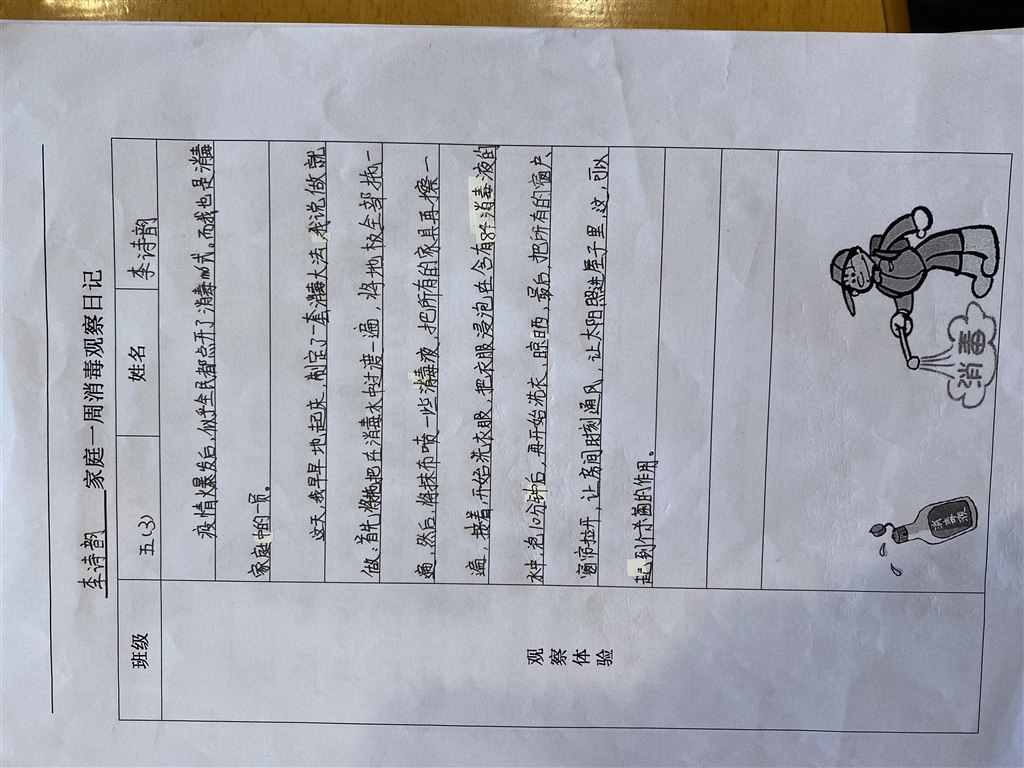 李诗韵 家庭一周消毒观察日记
班级 五(3) 姓名 李诗韵
观察体验
疫情爆发后,似乎全民都点开了消毒模式。而我也是消毒
家庭中的一员。
这天,我早早地起床,制定了一套消毒大法,我说做就
做:首先,将拖把在消毒水中过渡一遍,将地板全部拖一
遍,然后,将抹布喷一些消毒液,把所有的家具再擦一
遍,接着,开始洗衣服,把衣服浸泡在含有84消毒液的
水中,泡10分钟后,再开始洗衣、晾晒,最后,把所有的窗户
窗帘拉开,让房间时刻通风,让太阳照进屋子里,这,可以
起到作杀菌的作用。
消毒液
消毒